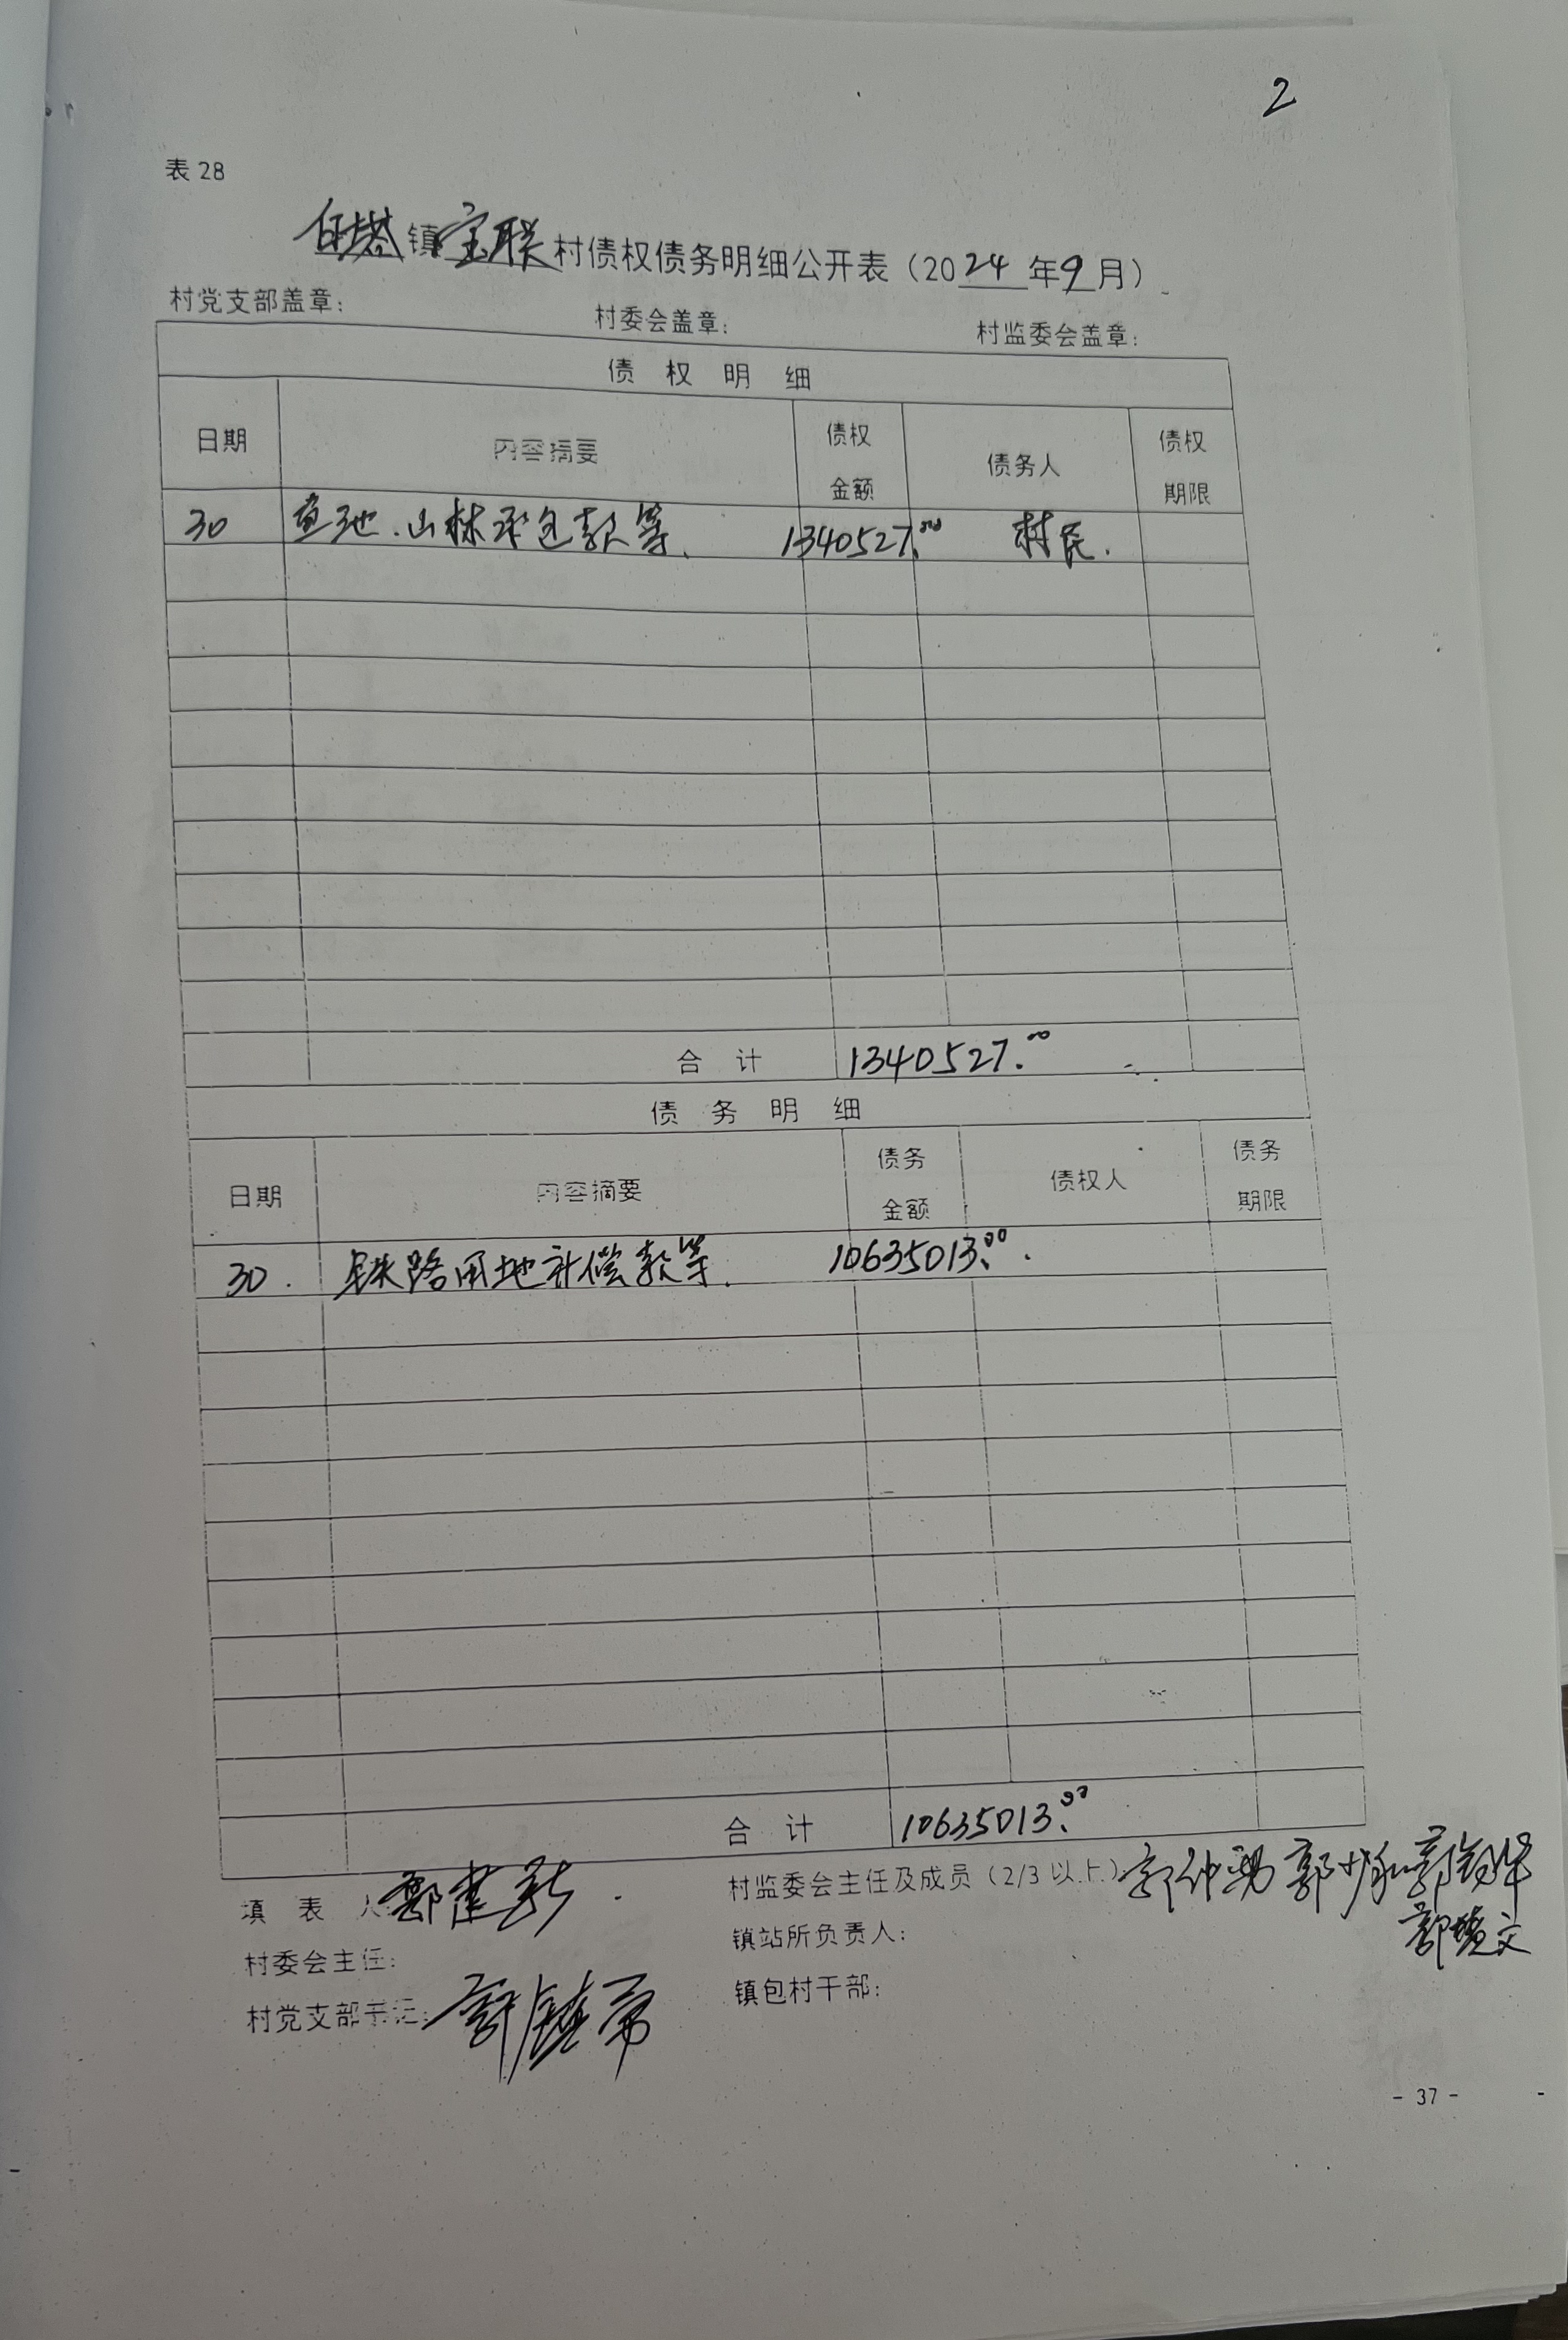 2
表 28
白塔镇宝联村债权债务明细公开表（2024年9月）
村党支部盖章： 村委会盖章： 村监委会盖章：
债 权 明 细
日期 内容摘要 债权金额 债务人 债权期限
30 鱼池、山林承包款等、 1340527.00 村民.
合 计 1340527.00
债 务 明 细
日期 内容摘要 债务金额 债权人 债务期限
30. 铁路用地补偿款等. 10635013.00.
合 计 10635013.00
填 表 人 郑建新. 村监委会主任及成员（2/3 以上）
村委会主任： 镇站所负责人：
村党支部书记： 镇包村干部：
- 37 -